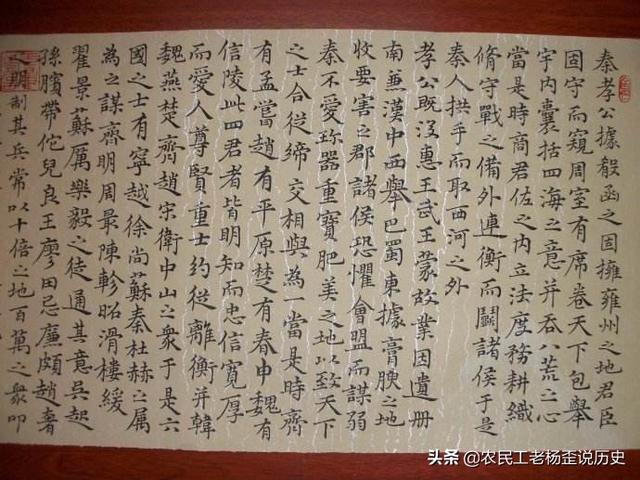 秦孝公據殽函之固擁雍州之地君臣
固守而窺周室有席卷天下包舉
宇內囊括四海之意并吞八荒之心
當是時商君佐之內立法度務耕織
脩守戰之備外連衡而鬭諸侯于是
秦人拱手而取西河之外
孝公既沒惠王武王蒙故業因遺册
南兼漢中西舉巴蜀東據膏腴之地
收要害之郡諸侯恐懼會盟而謀弱
秦不愛珍器重寶肥美之地以致天下
之士合從締交相與為一當是時齊
有孟嘗趙有平原楚有春申魏有
信陵此四君者皆明知而忠信寬厚
而愛人尊賢重士約從離衡并韓
魏燕楚齊趙宋衛中山之衆于是六
國之士有寧越徐尚蘇秦杜赫之属
為之謀齊明周最陳軫昭滑樓緩
翟景蘇厲樂毅之徒通其意吳起
孫臏帶佗兒良王廖田忌廉頗趙奢
之朋制其兵常以十倍之地百萬之衆叩
头条 @农民工老杨歪说历史